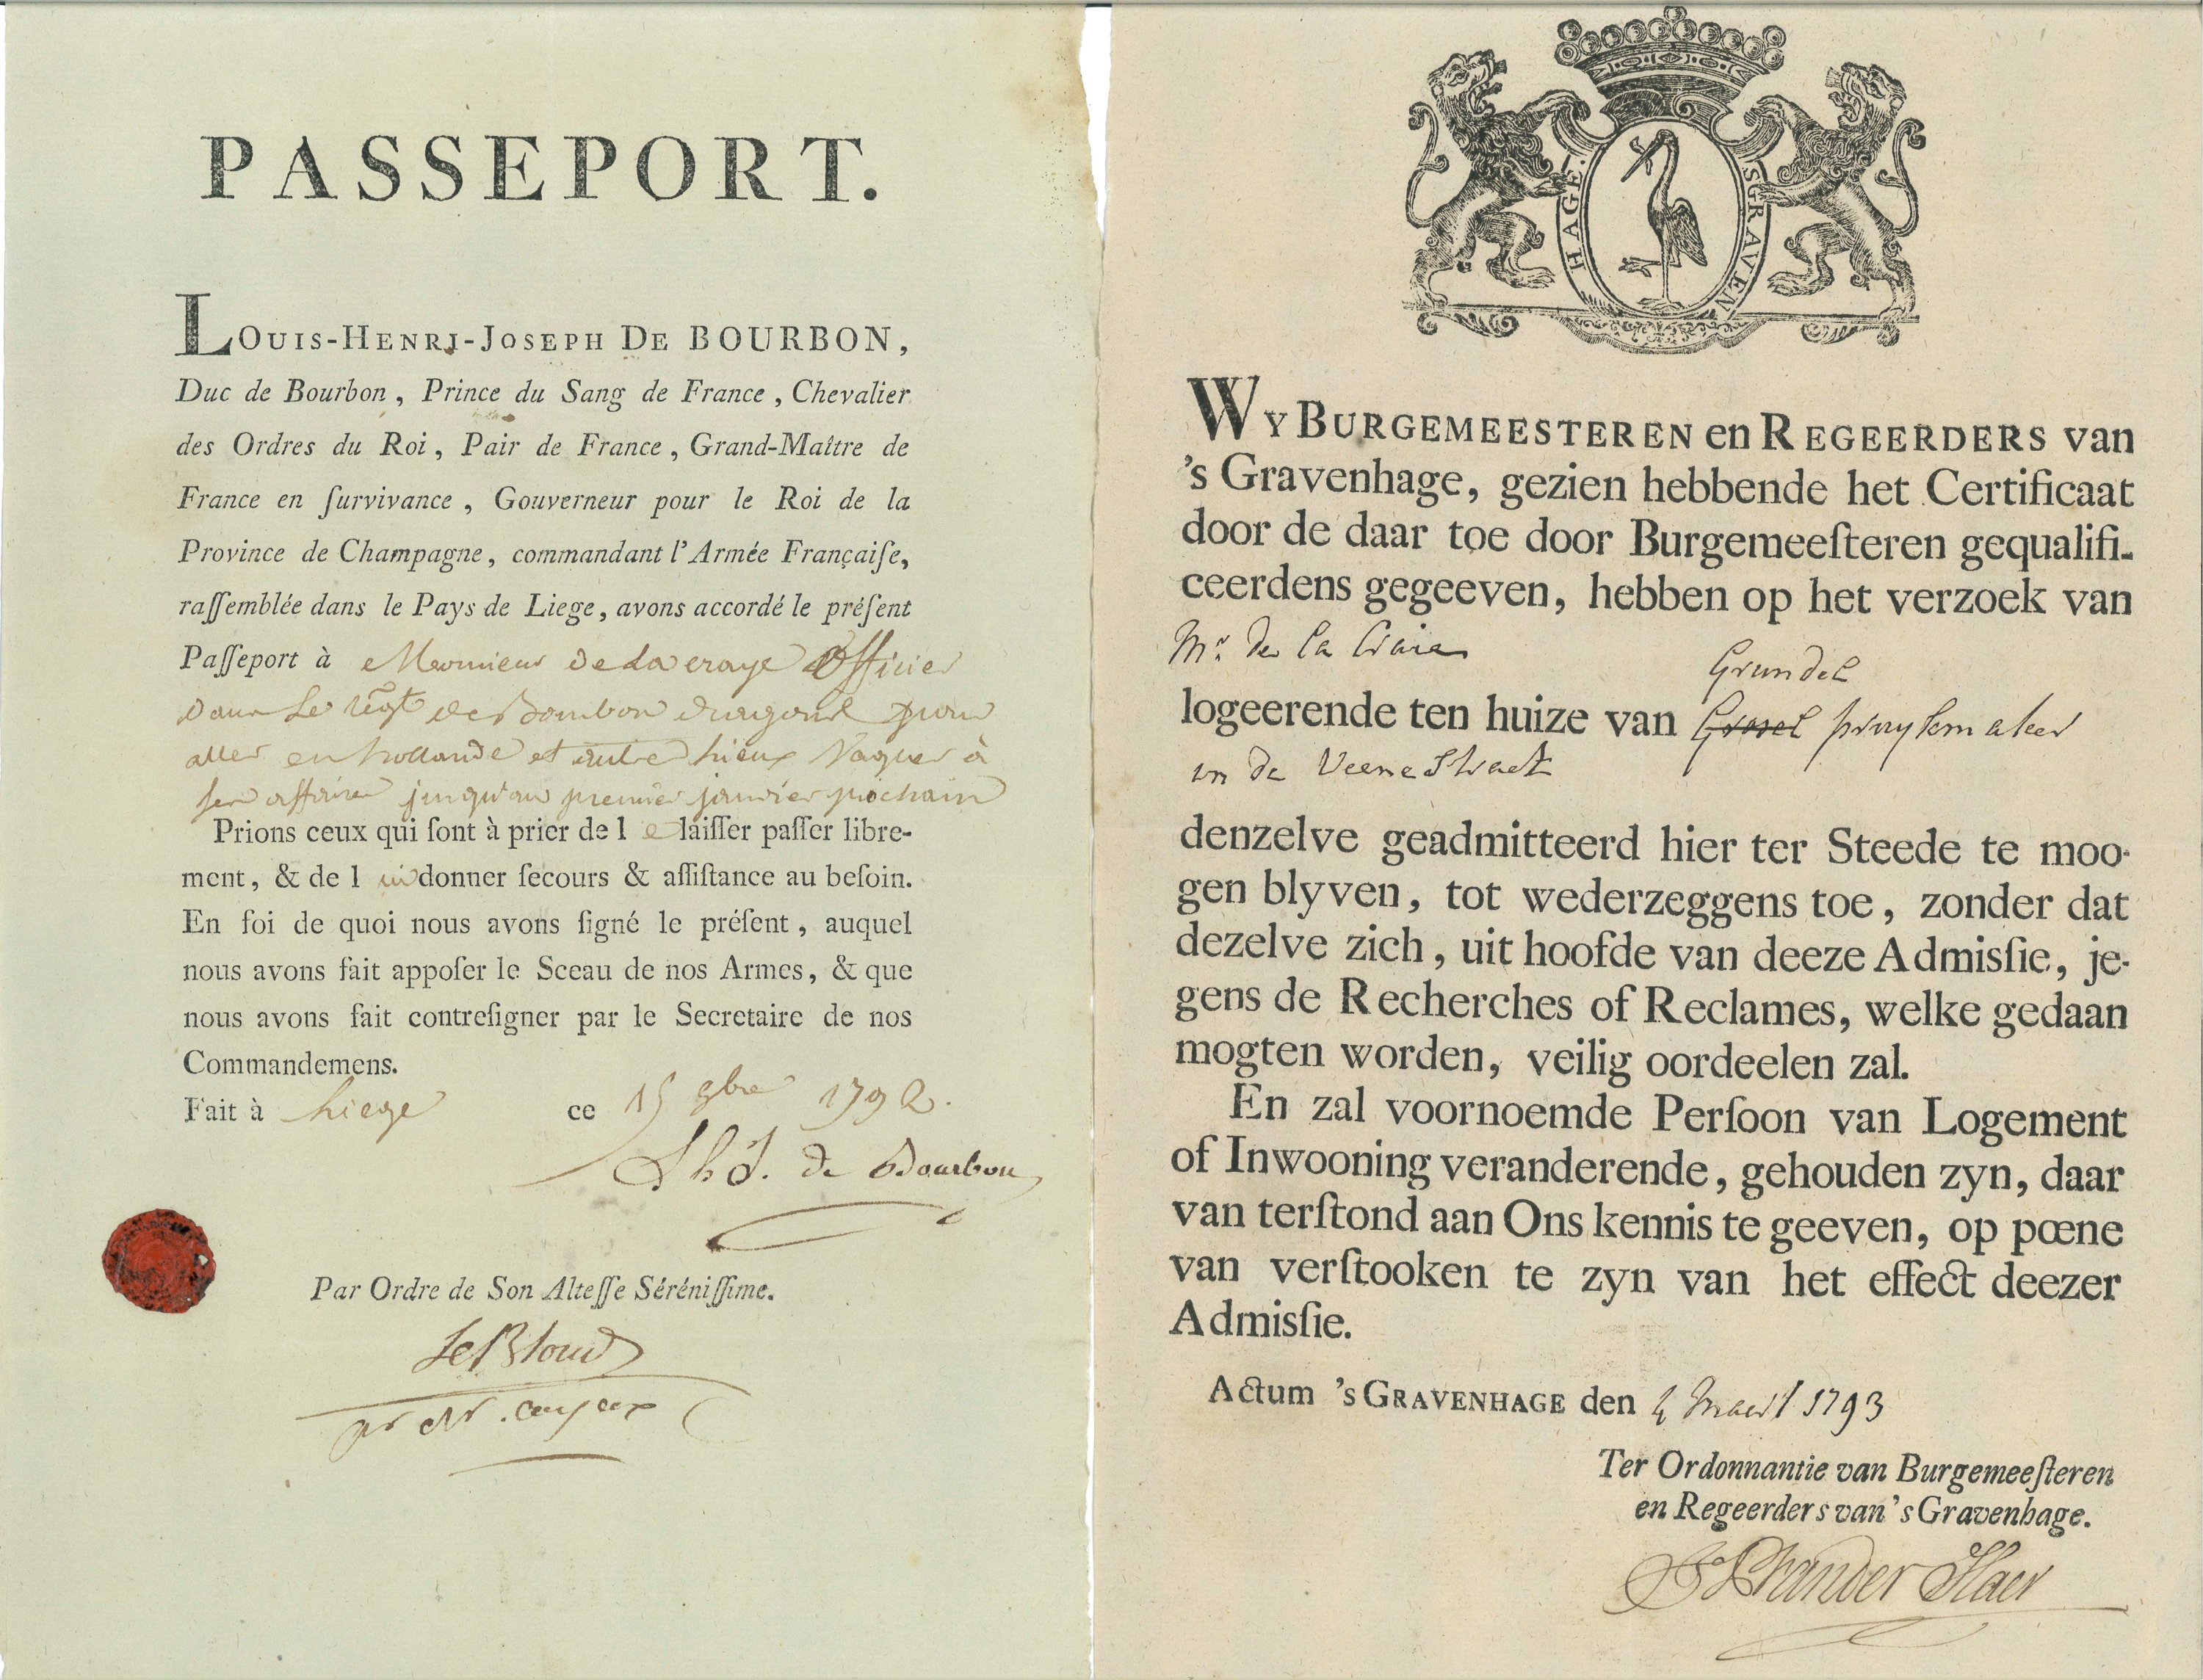 PASSEPORT.
LOUIS-HENRI-JOSEPH DE BOURBON,
Duc de Bourbon, Prince du Sang de France, Chevalier
des Ordres du Roi, Pair de France, Grand-Maître de
France en ſurvivance, Gouverneur pour le Roi de la
Province de Champagne, commandant l'Armée Françaiſe,
raſſemblée dans le Pays de Liege, avons accordé le préſent
Paſſeport à Monsieur De La craye Officier
Dans Le regt de Bourbon dragons pour
aller en hollande et autre Lieux Vaquer à
ses affaires jusqu'au premier janvier prochain
Prions ceux qui ſont à prier de l e laiſſer paſſer libre-
ment, & de l ui donner ſecours & aſſiſtance au beſoin.
En foi de quoi nous avons ſigné le préſent, auquel
nous avons fait appoſer le Sceau de nos Armes, & que
nous avons fait contreſigner par le Secretaire de nos
Commandemens.
Fait à Liege ce 15 9bre 1792.
L h J. de Bourbon
Par Ordre de Son Alteſſe Séréniſſime.
LeBlond
HAGE. SGRAVEN
WY BURGEMEESTEREN en REGEERDERS van
's Gravenhage, gezien hebbende het Certificaat
door de daar toe door Burgemeeſteren gequalifi-
ceerdens gegeeven, hebben op het verzoek van
Mr. de la Craie
Grundel
logeerende ten huize van pruykmaker
in de Veene Straet
denzelve geadmitteerd hier ter Steede te moo-
gen blyven, tot wederzeggens toe, zonder dat
dezelve zich, uit hoofde van deeze Admisſie, je-
gens de Recherches of Reclames, welke gedaan
mogten worden, veilig oordeelen zal.
En zal voornoemde Perſoon van Logement
of Inwooning veranderende, gehouden zyn, daar
van terſtond aan Ons kennis te geeven, op pœne
van verſtooken te zyn van het effect deezer
Admisſie.
Actum 's GRAVENHAGE den 4 Maart 1793
Ter Ordonnantie van Burgemeeſteren
en Regeerders van 's Gravenhage.
vander Haer